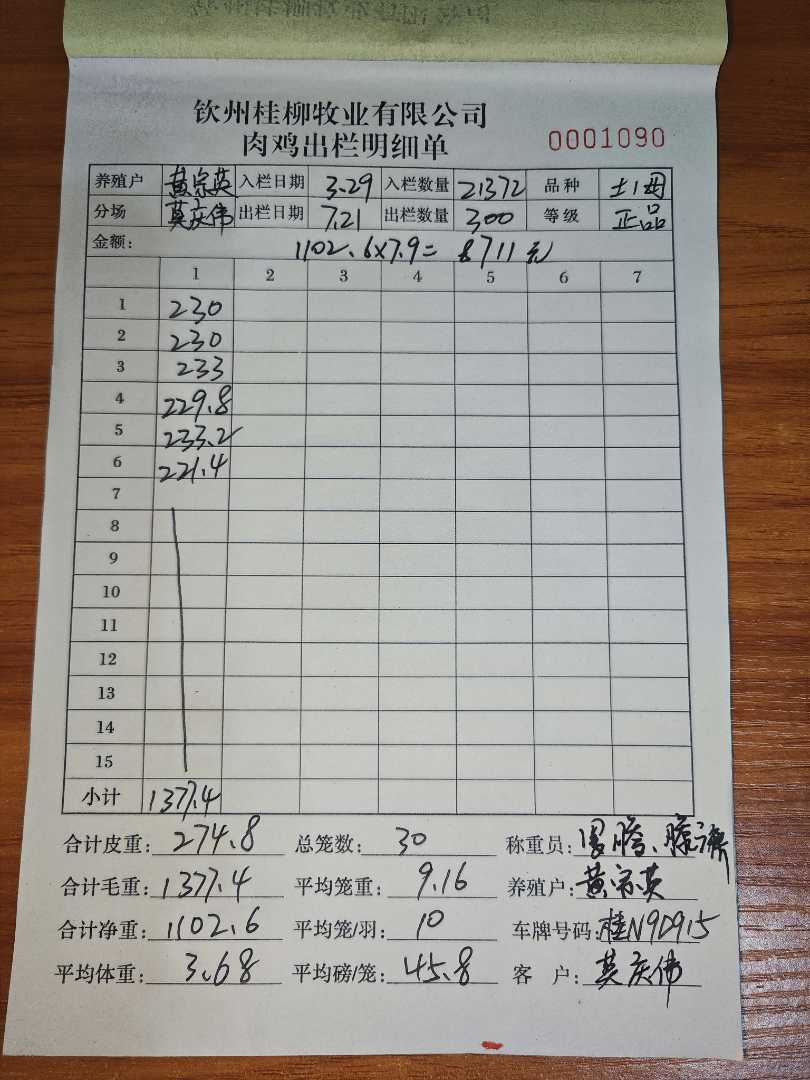 钦州桂柳牧业有限公司
肉鸡出栏明细单 0001090
养殖户 黄宗英 入栏日期 3.29 入栏数量 21372 品种 土1母
分场 莫庆伟 出栏日期 7.21 出栏数量 300 等级 正品
金额: 1102.6×7.9=8711元
1 2 3 4 5 6 7
1 230
2 230
3 233
4 229.8
5 233.2
6 221.4
7
8
9
10
11
12
13
14
15
小计 1377.4
合计皮重: 274.8 总笼数: 30 称重员:
合计毛重: 1377.4 平均笼重: 9.16 养殖户: 黄宗英
合计净重: 1102.6 平均笼/羽: 10 车牌号码: 桂N9D915
平均体重: 3.68 平均磅/笼: 45.8 客 户: 莫庆伟